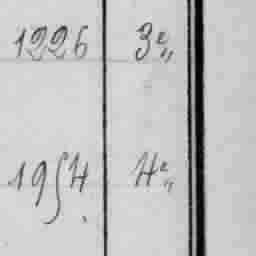 1226 3e„
1954 4e„